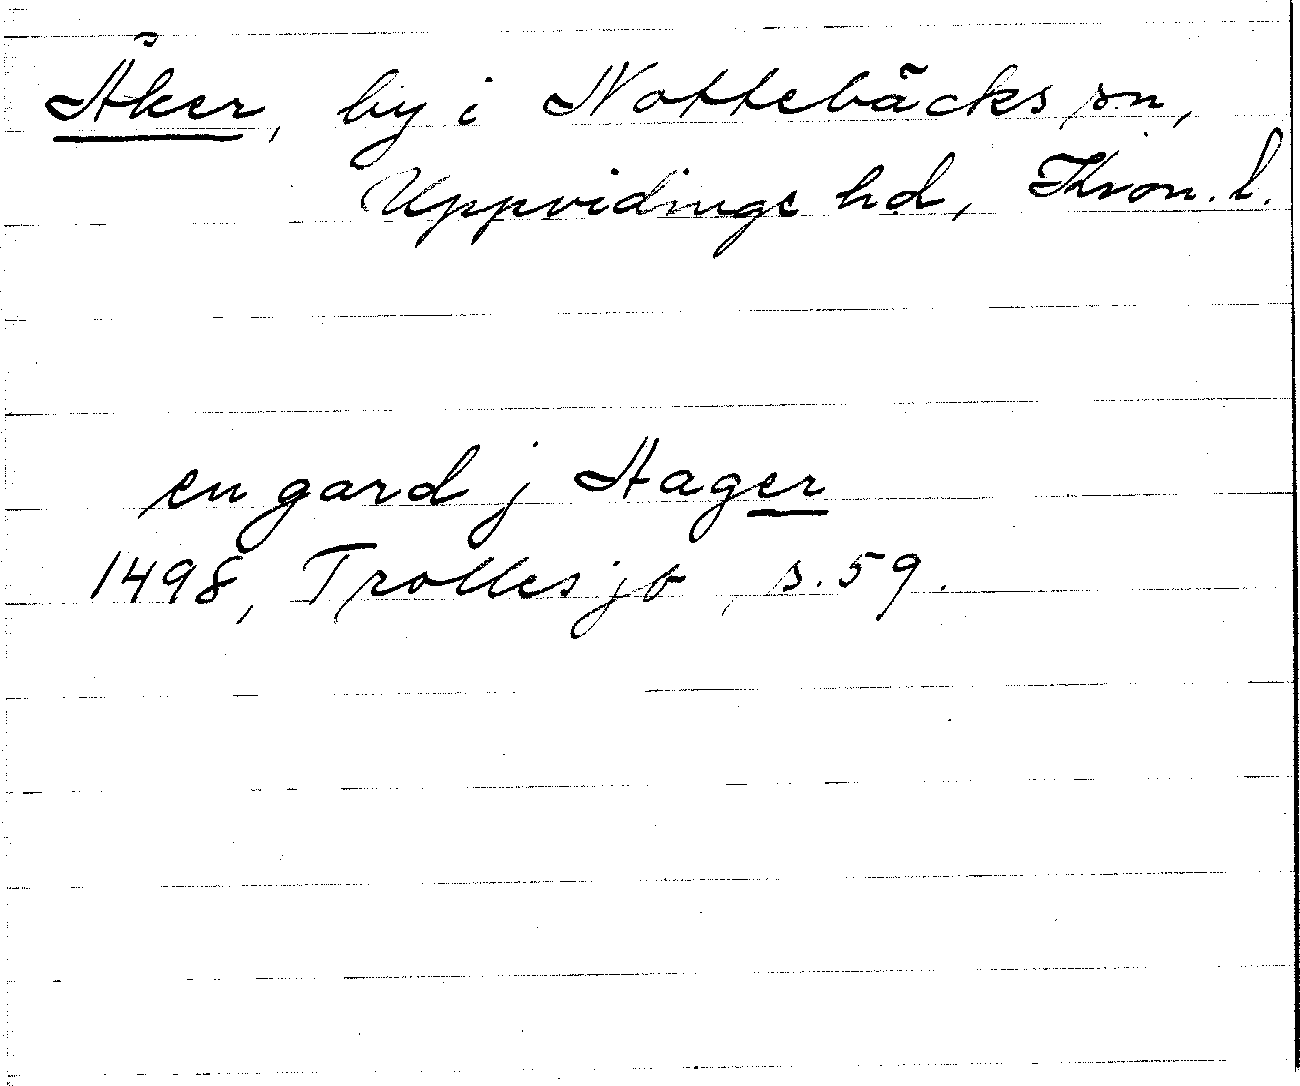 Åker, by i Nottebäcks sn,
Uppvidinge hd, Kron. l.
en gard j Aager
1498, Trolles jb s. 59.